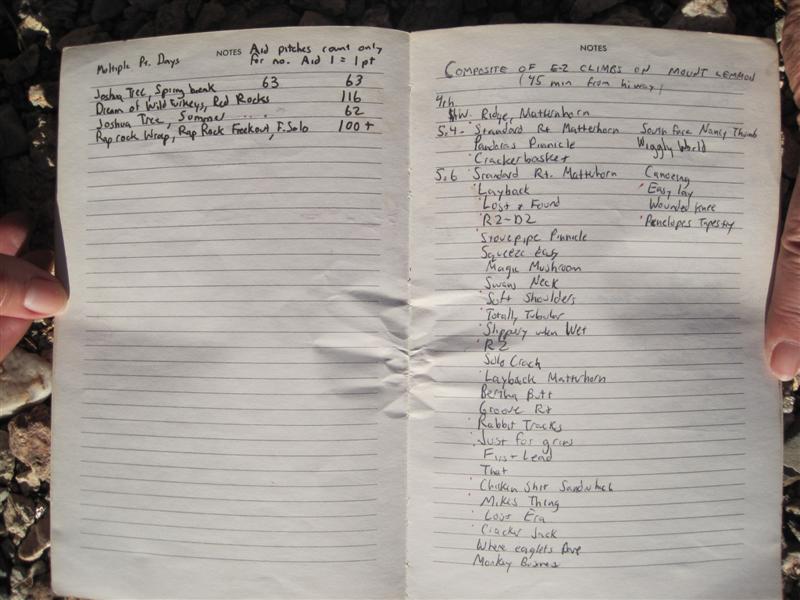 Multiple Pt. Days
NOTES Aid pitches count only
for no. Aid 1 = 1 pt
Joshua Tree, Spring break 63 63
Dream of Wild Turkeys, Red Rocks 116
Joshua Tree, Summer .... 62
Rap rock Wrap, Rap Rock Freakout, F. Solo 100 +
NOTES
COMPOSITE OF E-Z CLIMBS ON MOUNT LEMMON
(45 min from hiway)
4th
N.W. Ridge, Matternhorn
5.4 - Standard Rt Matterhorn South Face Nancy Thumb
Pandoras Pinnacle Wiggly World
Crackerbasket
5.6 Standard Rt. Matterhorn Canoeing
Layback Easy lay
Lost & Found Wounded Knee
R2-D2 Penelopes Tapestry
Stovepipe Pinnacle
Squeeze Easy
Magic Mushroom
Swans Neck
Soft Shoulders
Totally Tubular
Slippery when Wet
R2
Solo Crack
Layback Matterhorn
Bertha Butt
Groove Rt
Rabbit Tracks
Just for grins
First Lead
That
Chicken Shit Sandwhich
Mikes Thing
Lost Era
Cracker Jack
Where eaglets Dare
Monkey Business